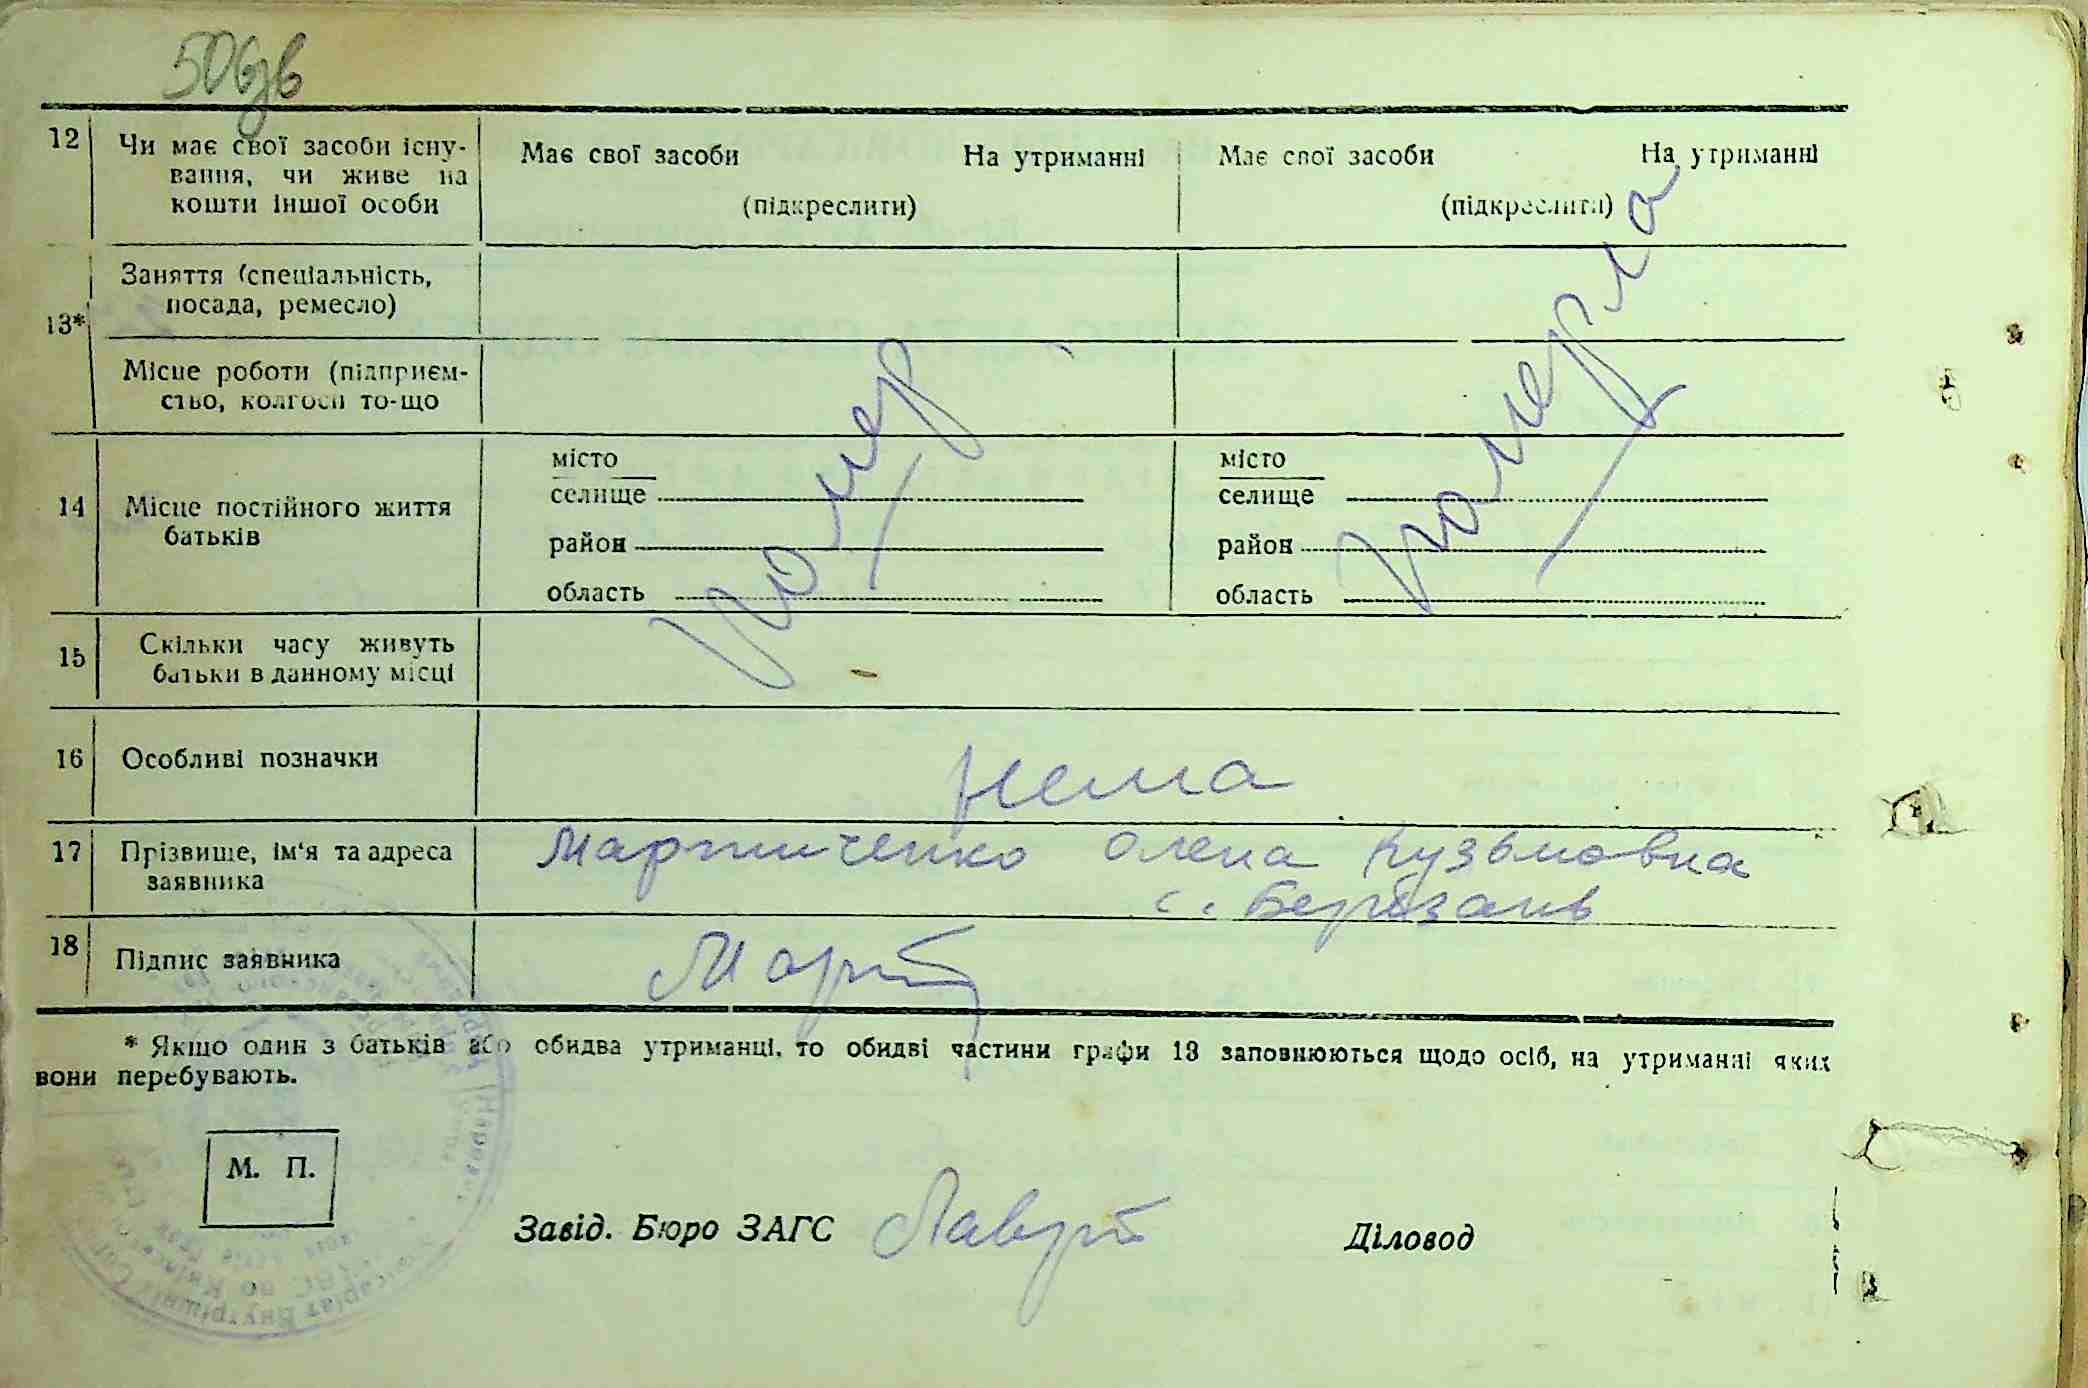 50бзв
12 Чи має свої засоби існу-
вання, чи живе на
кошти іншої особи
Має свої засоби На утриманні
(підкреслити)
Має свої засоби На утриманні
(підкреслити)
13* Заняття (спеціальність,
посада, ремесло)
Місце роботи (підприєм-
ство, колгосп то-що
помер
померла
14 Місце постійного життя
батьків
місто
селище
район
область
місто
селище
район
область
15 Скільки часу живуть
батьки в данному місці
16 Особливі позначки
нема
17 Прізвище, ім'я та адреса
заявника
Мартиченко Олена Кузьмовна
с. Березань
18 Підпис заявника
Март
* Якщо один з батьків або обидва утриманці, то обидві частини графи 13 заповнюються щодо осіб, на утриманні яких
вони перебувають.
М. П.
Завід. Бюро ЗАГС
Діловод